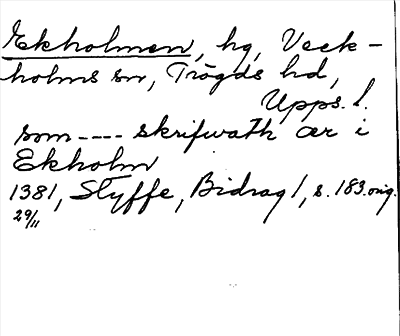 Ekholmen, hg, Veck-
holms sn, Trögds hd,
Upps. l.
som ---- skrifwath ær i
Ekholm
1381, Styffe, Bidrag 1, s. 183. orig.
29/11